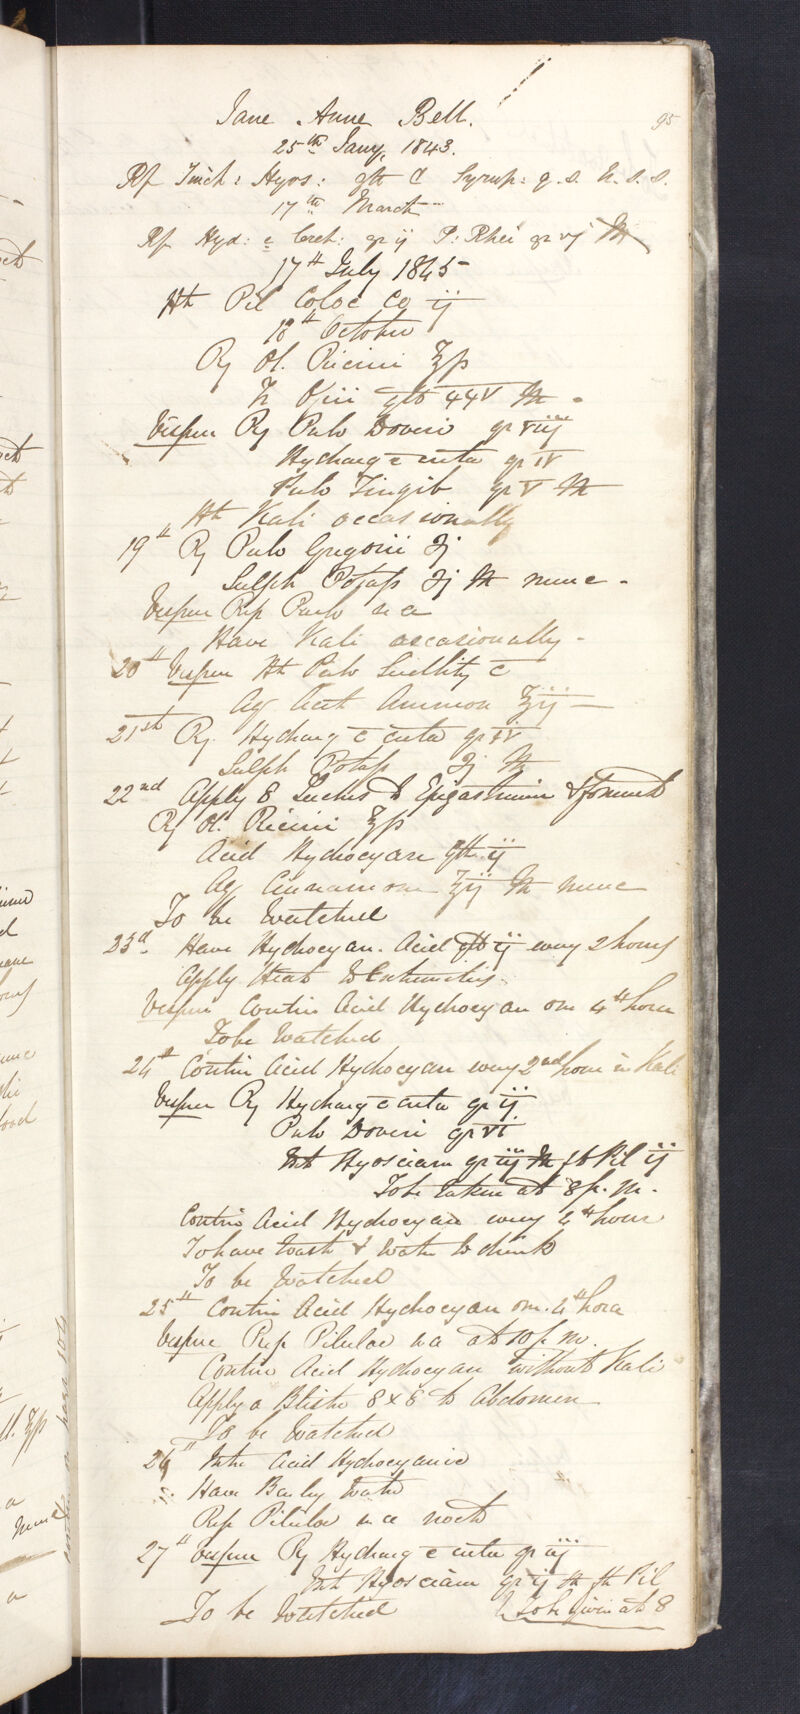 95
Jane Anne Bell.
25th Jany, 1843.
Rf Tinct: Hyos: gtt C Syrup: q.s. h.s.s.
17th March
Rf Hyd: c Cret: gr ij P: Rhei gr vj M
17th July 1845
Ht Pil Coloc Co ij
18th October
Rx Ol. Ricini ℥ß
Tr Opii gtt M
Vespere Rx Pulv Doveri gr viij
Hydrarg c creta gr iv
Pulv Zingib gr v M
Ht Kali occasionally
19th Rx Pulv Gregorii ʒj
Sulph Potass ʒj M nunc -
Vespere Rep Pulv u a
Have Kali occasionally -
20th Vespere Ht Pulv Seidlitz c
Aq Acet Ammon ℥ij
21st Rx Hydrarg c creta gr iv
Sulph Potass ʒj M
22nd Apply 8 Leeches to Epigastrium & foment
Rx Ol. Ricini ℥ß
Acid Hydrocyan gtt ij
Aq Cinnamom ℥ij M nunc
To be Watched
23d. Have Hydrocyan. Acid gtt ij every 2 hours
Apply Heat to Extremities
Vespere Contin Acid Hydrocyan om 4th hora
To be Watched
24th Contin Acid Hydrocyan every 2nd hour in Kali
Vesper Rx Hydrarg c creta gr ij
Pulv Doveri gr vi
Ext Hyosciam gr iij M ft Pil ij
To be taken at 8 p.m.
Contin Acid Hydrocyan every 4th hour
To have Toast & Water to drink
To be Watched
25th Contin Acid Hydrocyan om. 4th hora
Vespere Rep Pilulae u a at 10 p.m.
Contin Acid Hydrocyan without Kali
Apply a Blister 8 x 6 to Abdomen
To be Watched
26th Inter Acid Hydrocyanic
Have Barley Water
Rep Pilulae u a nocte
27th Vespere Rx Hydrarg c creta gr iij
Ext Hyosciam gr ij M ft Pil
To be Watched To be given at 8